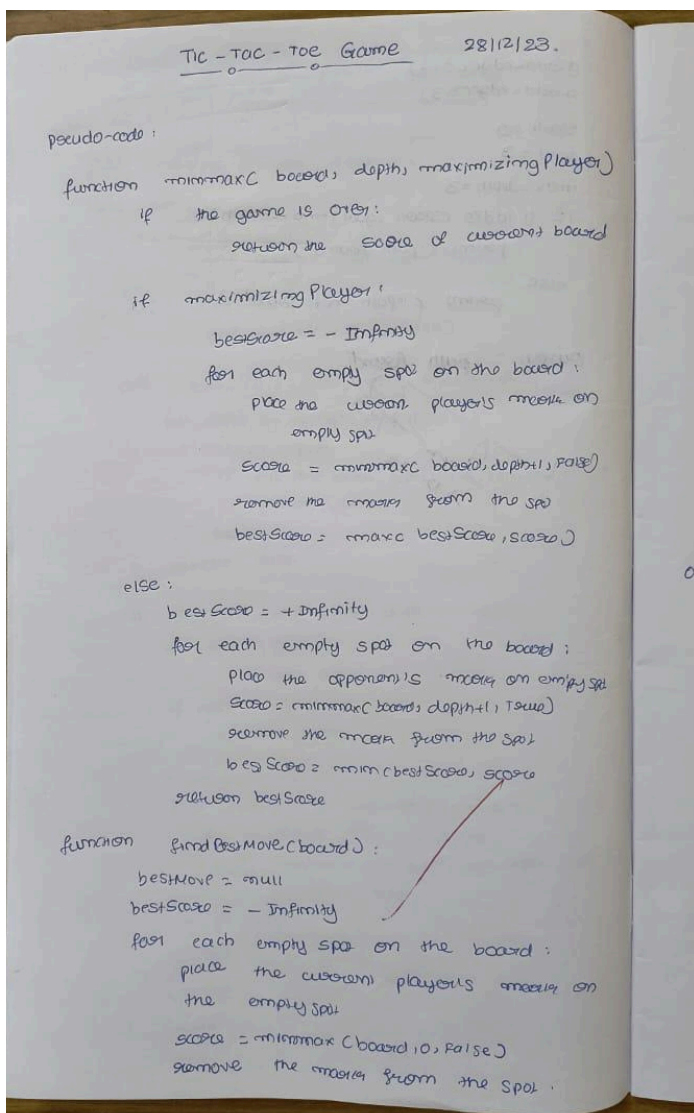 TIC - TAC - TOE Game 28/12/23.
pseudo-code :
function minmax( board, depth, maximizingPlayer)
if the game is over:
return the score of current board
if maximizingPlayer:
bestScore = - Infinity
for each empty spot on the board :
place the curren player's mark on
empty spot
score = minmax( board, depth+1, False)
remove the mark from the spot
bestScore = max( bestScore, score)
else :
bestScore = + Infinity
for each empty spot on the board :
place the opponent's mark on empty spot
Score = minmax( board, depth+1, True)
remove the mark from the spot
bestScore = min (bestScore, score
return bestScore
function findBestMove (board) :
bestMove = null
bestScore = - Infinity
for each empty spot on the board :
place the current player's mark on
the empty spot
score = minmax (board, 0, False)
remove the mark from the spot.